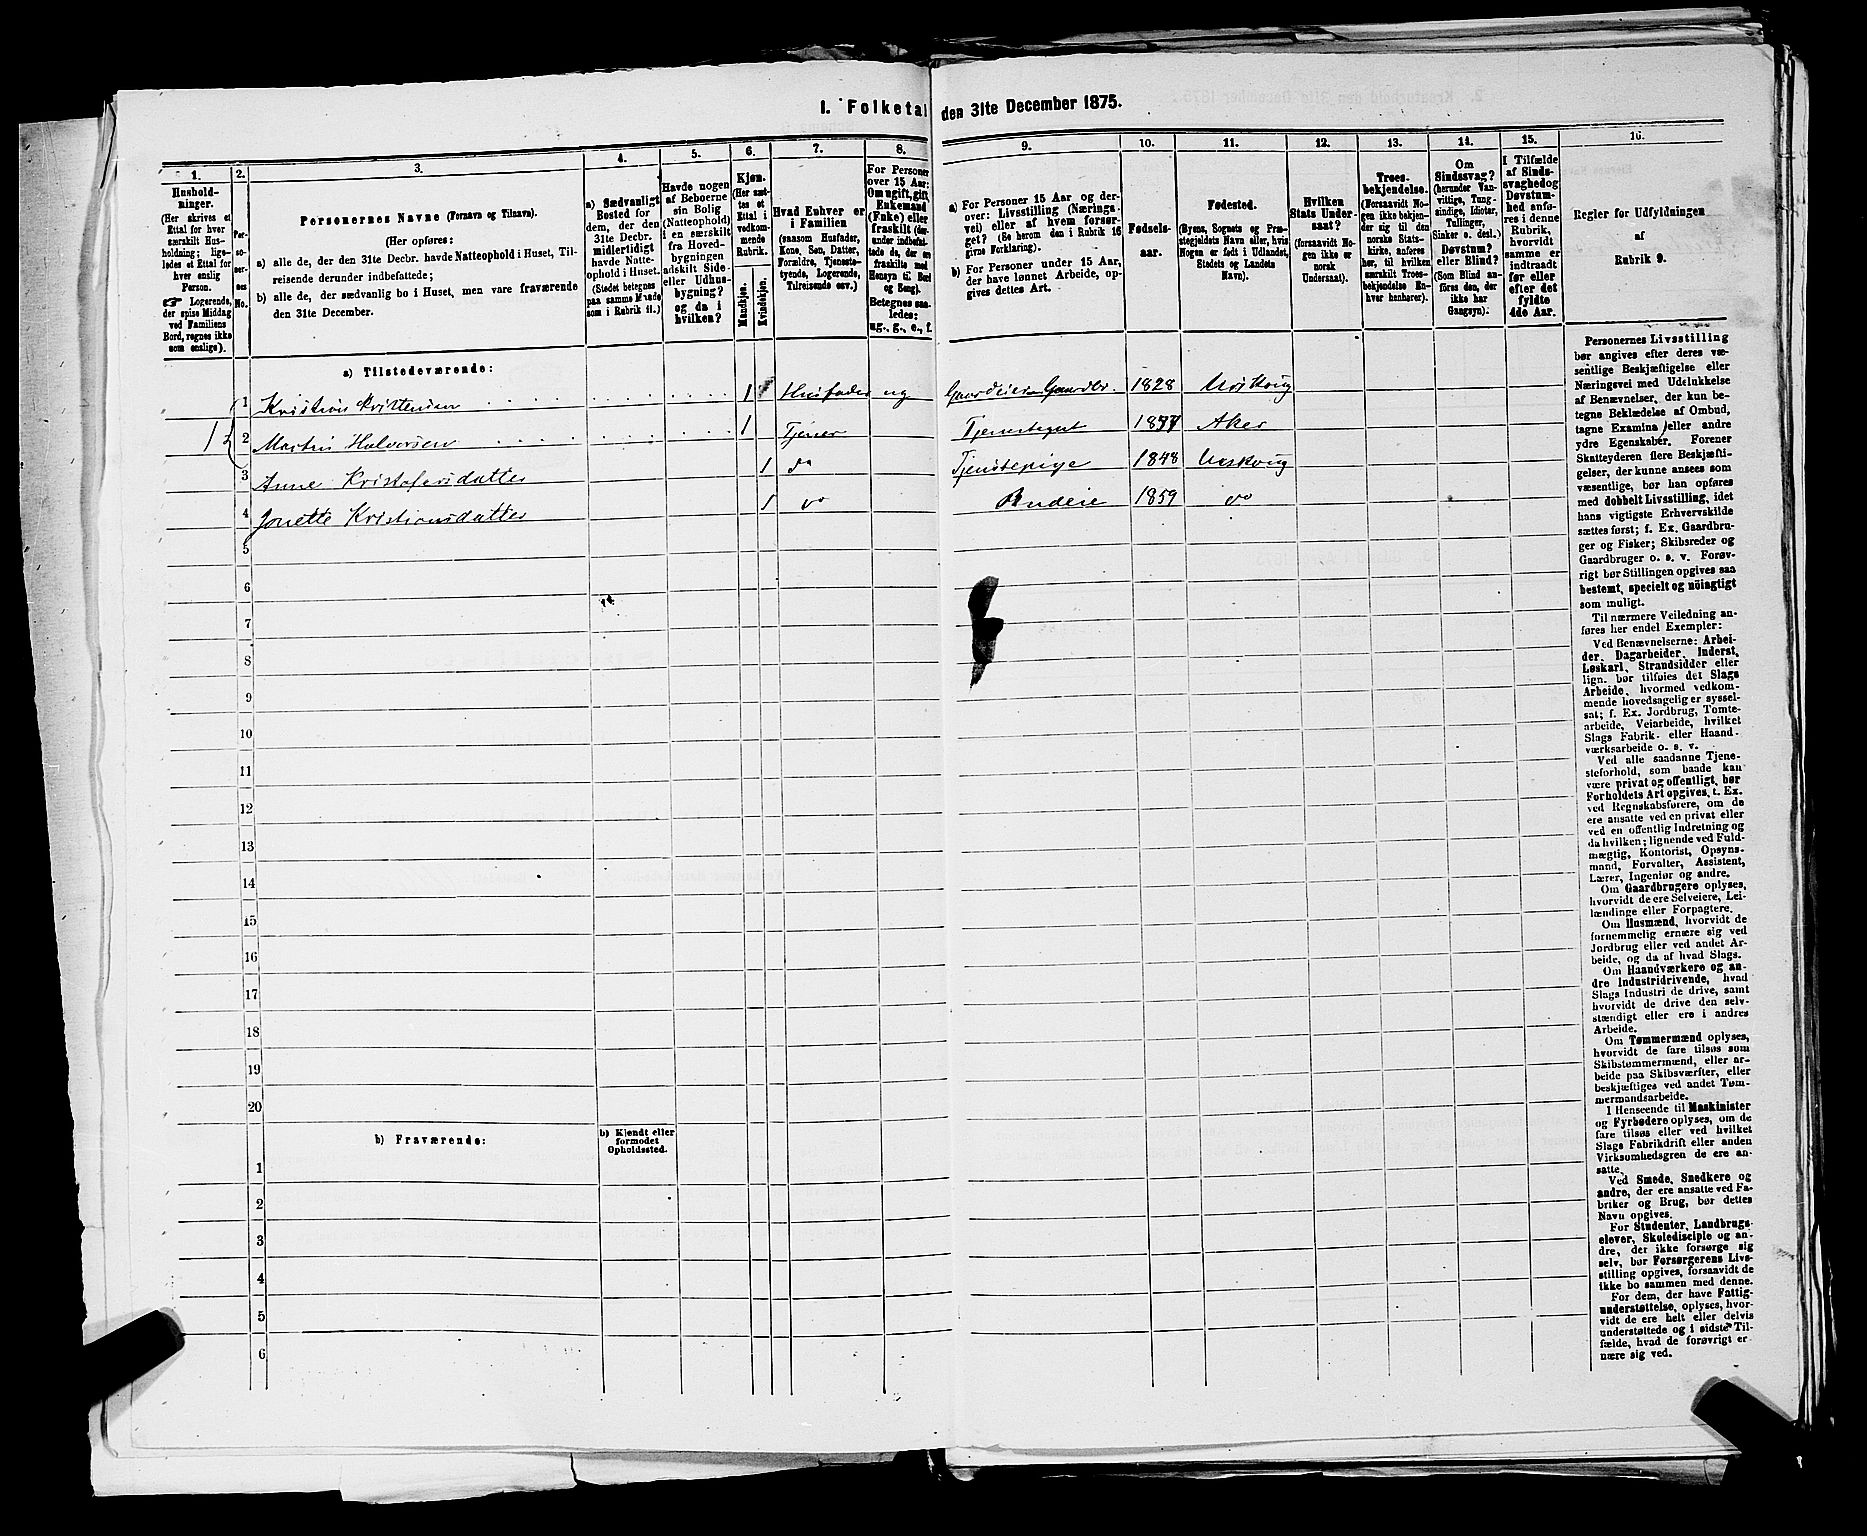 I. Folketal den 31te December 1875.
1.
2.
3.
4.
5.
6.
7.
8.
9.
10.
11.
12.
13.
14.
15.
16.
Hushold-
ninger.
(Her skrives et
Ettal for hver
særskilt Hus-
holdning; lige-
ledes et Ettal for
hver enslig
Person.
☞ Logerende,
der spise Middag
ved Familiens
Bord, regnes ikke
som enslige).
Per-
so-
ner-
nes
No.
Personernes Navne (Fornavn og Tilnavn).
(Her opføres:
a) alle de, der den 31te Decbr. havde Natteophold i Huset, Til-
reisende derunder indbefattede;
b) alle de, der sædvanlig bo i Huset, men vare fraværende
den 31te December.
a) Sædvanligt
Bosted for
dem, der den
31te Decbr.
midlertidigt
havde Natte-
ophold i Huset.
(Stedet betegnes
paa samme Maade
som i Rubrik 11.)
Havde nogen
af Beboerne
sin Bolig
(Natteophold)
i en særskilt
fra Hoved-
bygningen
adskilt Side-
eller Udhus-
bygning?
og da i
hvilken?
Kjøn.
(Her sæt-
tes et
Ettal i
vedkom-
mende
Rubrik.
Mandkjøn.
Kvindekjøn.
Hvad Enhver er
i Familien
(saasom Husfader,
Kone, Søn, Datter,
Forældre, Tjeneste-
tyende, Logerende,
Tilreisende osv.)
For Personer
over 15 Aar:
Om ugift, gift,
Enkemand
(Enke) eller
fraskilt (der-
under indbefat-
tede de, der ere
fraskilte med
Hensyn til Bord
og Seng).
Betegnes saa-
ledes:
ug., g., e., f.
a) For Personer 15 Aar og der-
over: Livsstilling (Nærings-
vei) eller af hvem forsør-
get? (Se herom den i Rubrik 16
givne Forklaring).
b) For Personer under 15 Aar,
der have lønnet Arbeide, op-
gives dettes Art.
Fødsels-
aar.
Fødested.
(Byens, Sognets og Præ-
stegjeldets Navn eller, hvis
Nogen er født i Udlandet,
Stedets og Landets
Navn).
Hvilken
Stats Under-
saat?
(forsaavidt No-
gen ikke er
norsk
Undersaat).
Troes-
bekjendelse.
(Forsaavidt No-
gen ikke bekjen-
der sig til den
norske Stats-
kirke, anføres
her, til hvilken
særskilt Troes-
bekjendelse En-
hver henhører).
Om
Sindssvag?
(herunder Van-
vittige, Tung-
sindige, Idioter,
Tullinger,
Sinker o. desl.)
Døvstum?
eller Blind?
(Som Blind an-
føres den, der
ikke har
Gangsyn).
I Tilfælde
af Sinds-
svaghed og
Døvstum-
hed anfø-
res i denne
Rubrik,
hvorvidt
samme er
indtraadt
før eller
efter det
fyldte
4de Aar.
Regler for Udfyldningen
af
Rubrik 9.
a) Tilstedeværende:
1 Kristian Kristensen 1 Husfader ug Gaardeier Gaardbr. 1828 Urskoug
1 2 Martin Halvorsen 1 Tjener Tjenestegut 1877 Aker
3 Anne Kristofersdatter 1 do Tjenstepige 1848 Urskoug
4 Jonette Kristiansdatter 1 do Budeie 1859 do
5
6
7
8
9
10
11
12
13
14
15
16
17
18
19
20
b) Fraværende:
b) Kjendt eller
formodet
Opholdssted.
1
2
3
4
5
6
Personernes Livsstilling
bør angives efter deres væ-
sentlige Beskjæftigelse eller
Næringsvei med Udelukkelse
af Benævnelser, der kun be-
tegne Beklædelse af Ombud,
tagne Examina eller andre
ydre Egenskaber. Forener
Skatteyderen flere Beskjæfti-
gelser, der kunne ansees som
væsentlige, bør han opføres
med dobbelt Livsstilling, idet
hans vigtigste Erhvervskilde
sættes først; f. Ex. Gaardbru-
ger og Fisker; Skibsreder og
Gaardbruger o. s. v. Forøv-
rigt bør Stillingen opgives saa
bestemt, specielt og nöiagtigt
som muligt.
Til nærmere Veiledning an-
føres her endel Exempler:
Ved Benævnelserne: Arbei-
der, Dagarbeider, Inderst,
Løskarl, Strandsidder eller
lign. bør tilføies det Slags
Arbeide, hvormed vedkom-
mende hovedsagelig er syssel-
sat; f. Ex. Jordbrug, Tomte-
arbeide, Veiarbeide, hvilket
Slags Fabrik- eller Haand-
værksarbeide o. s. v.
Ved alle saadanne Tjene-
steforhold, som baade kan
være privat og offentligt, bør
Forholdets Art opgives, t. Ex.
ved Regnskabsførere, om de
ere ansatte ved en privat eller
ved en offentlig Indretning og
da hvilken; lignende ved Fuld-
mægtig, Kontorist, Opsyns-
mand, Forvalter, Assistent,
Lærer, Ingeniør og andre.
Om Gaardbrugere oplyses,
hvorvidt de ere Selveiere, Lei-
lændinge eller Forpagtere.
Om Husmænd, hvorvidt de
fornemmelig ernære sig ved
Jordbrug eller ved andet Ar-
beide, og da af hvad Slags.
Om Haandværkere og an-
dre Industridrivende, hvad
Slags Industri de drive, samt
hvorvidt de drive den selv-
stændigt eller ere i andres
Arbeide.
Om Tømmermænd oplyses,
hvorvidt de fare tilsøs som
Skibstømmermænd, eller ar-
beide paa Skibsværfter, eller
beskjæftiges ved andet Tøm-
mermandsarbeide.
I Henseende til Maskinister
og Fyrbødere oplyses, om de
fare tilsøs eller ved hvilket
Slags Fabrikdrift eller anden
Virksomhedsgren de ere an-
satte.
Ved Smede, Snedkere og
andre, der ere ansatte ved Fa-
briker og Brug, bør dettes
Navn opgives.
For Studenter, Landbrugs-
elever, Skoledisciple og an-
dre, der ikke forsørge sig
selv, bør Forsørgerens Livs-
stilling opgives, forsaavidt de
ikke bo sammen med denne.
For dem, der have Fattig-
understøttelse, oplyses, hvor-
vidt de ere helt eller delvis
understøttede og i sidste Til-
fælde, hvad de forøvrigt er-
nære sig ved.